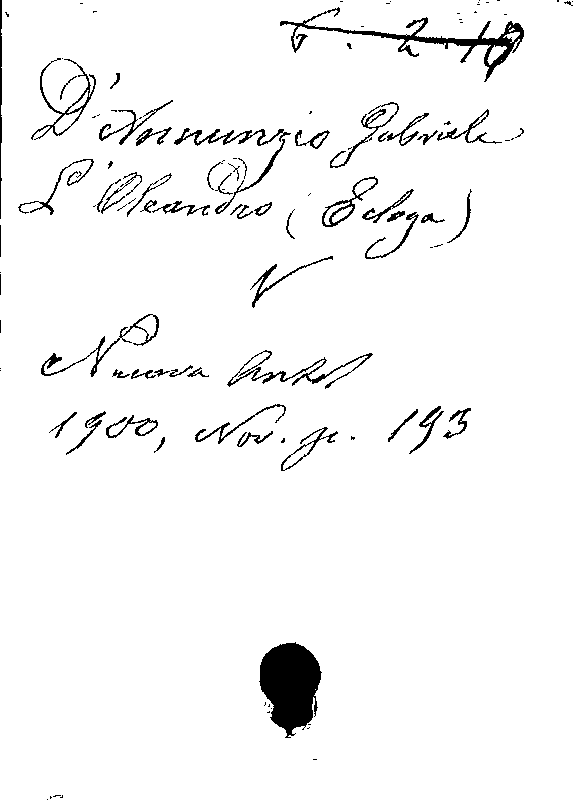 6. 2. 10
D'Annunzio Gabriele
L'Oleandro (Ecloga)
V
Nuova Antol
1900, Nov. p. 193